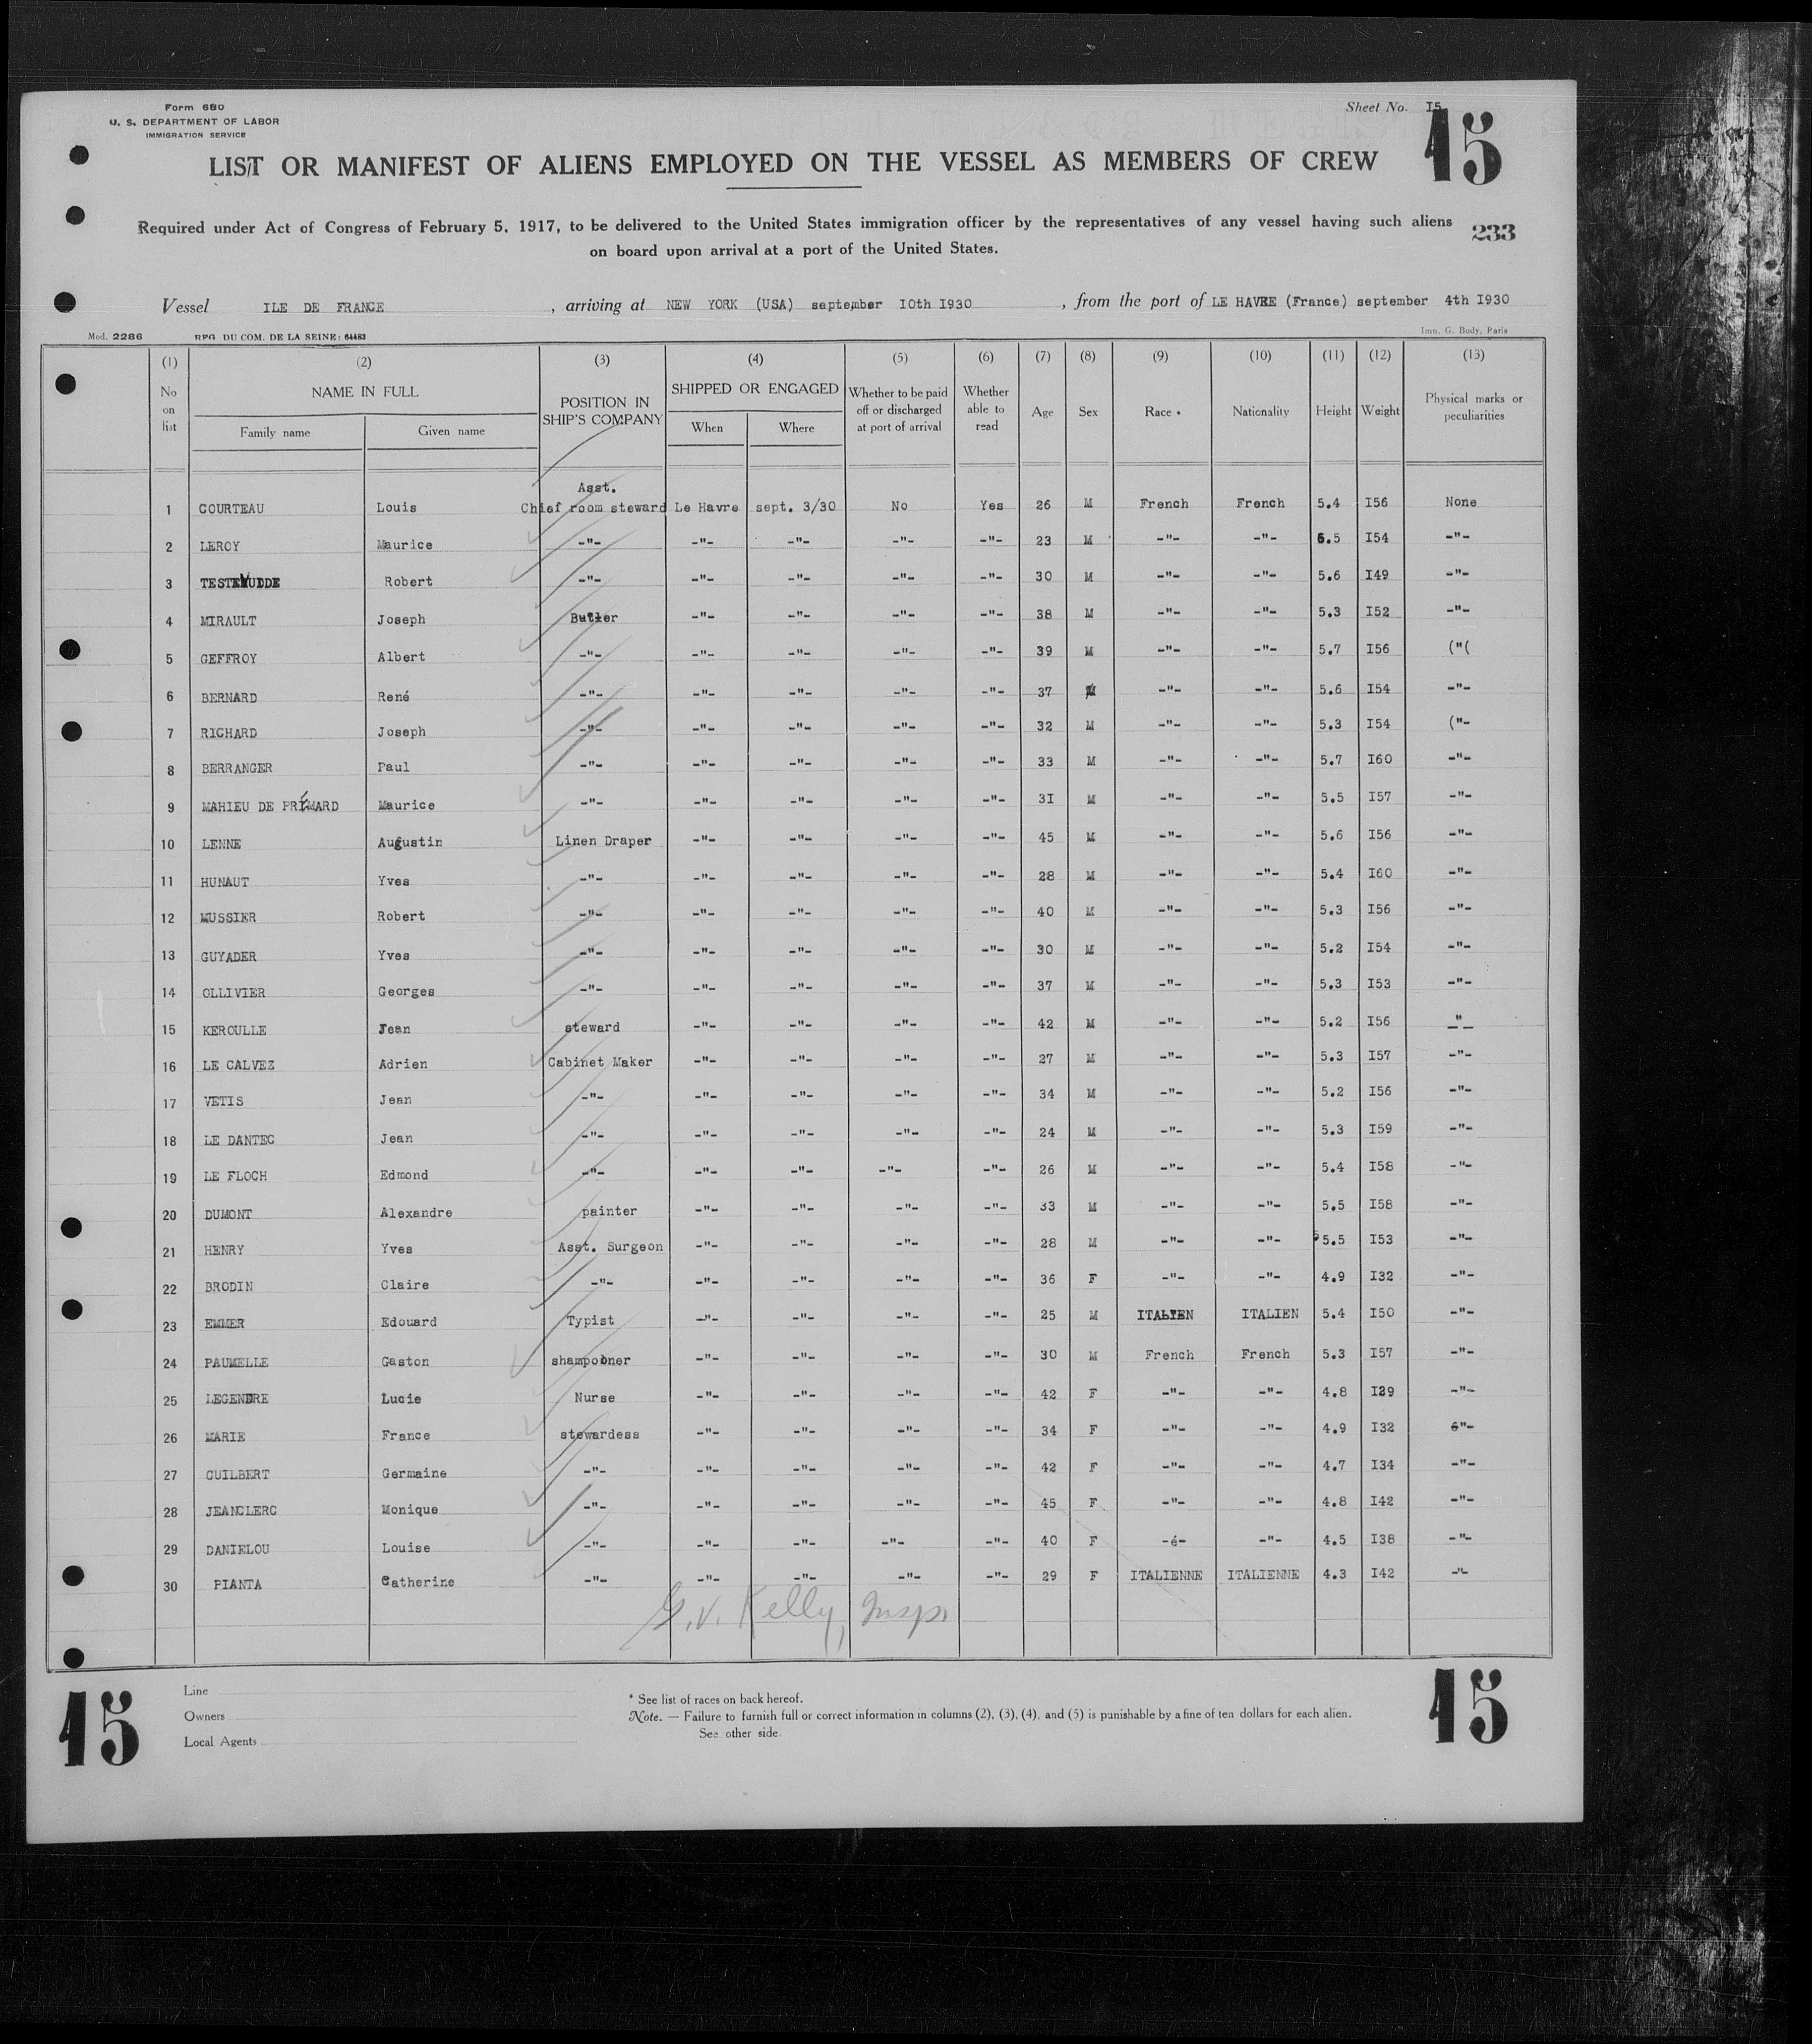 Form 680
U. S. DEPARTMENT OF LABOR
IMMIGRATION SERVICE
Sheet No. I5
15
LIST OR MANIFEST OF ALIENS EMPLOYED ON THE VESSEL AS MEMBERS OF CREW
Required under Act of Congress of February 5, 1917, to be delivered to the United States immigration officer by the representatives of any vessel having such aliens
on board upon arrival at a port of the United States.
233
Vessel ILE DE FRANCE , arriving at NEW YORK (USA) september I0th I930 , from the port of LE HAVRE (France) september 4th I930
Mod. 2286 REG. DU COM. DE LA SEINE: 64483 Imp. G. Body, Paris
(1) (2) (3) (4) (5) (6) (7) (8) (9) (10) (11) (12) (13)
No on list NAME IN FULL POSITION IN SHIP'S COMPANY SHIPPED OR ENGAGED Whether to be paid off or discharged at port of arrival Whether able to read Age Sex Race * Nationality Height Weight Physical marks or peculiarities
Family name Given name When Where
Asst.
1 COURTEAU Louis Chief room steward Le Havre sept. 3/30 No Yes 26 M French French 5.4 I56 None
2 LEROY Maurice -"- -"- -"- -"- -"- 23 M -"- -"- 6.5 I54 -"-
3 Robert -"- -"- -"- -"- -"- 30 M -"- -"- 5.6 I49 -"-
4 MIRAULT Joseph Butler -"- -"- -"- -"- 38 M -"- -"- 5.3 I52 -"-
5 GEFFROY Albert -"- -"- -"- -"- -"- 39 M -"- -"- 5.7 I56 ("(
6 BERNARD René -"- -"- -"- -"- -"- 37 M -"- -"- 5.6 I54 -"-
7 RICHARD Joseph -"- -"- -"- -"- -"- 32 M -"- -"- 5.3 I54 ("-
8 BERRANGER Paul -"- -"- -"- -"- -"- 33 M -"- -"- 5.7 I60 -"-
9 MAHIEU DE PRÉMARD Maurice -"- -"- -"- -"- -"- 3I M -"- -"- 5.5 I57 -"-
10 LENNE Augustin Linen Draper -"- -"- -"- -"- 45 M -"- -"- 5.6 I56 -"-
11 HUNAUT Yves -"- -"- -"- -"- -"- 28 M -"- -"- 5.4 I60 -"-
12 MUSSIER Robert -"- -"- -"- -"- -"- 40 M -"- -"- 5.3 I56 -"-
13 GUYADER Yves -"- -"- -"- -"- -"- 30 M -"- -"- 5.2 I54 -"-
14 OLLIVIER Georges -"- -"- -"- -"- -"- 37 M -"- -"- 5.3 I53 -"-
15 KEROULLE Jean steward -"- -"- -"- -"- 42 M -"- -"- 5.2 I56 _"_
16 LE CALVEZ Adrien Cabinet Maker -"- -"- -"- -"- 27 M -"- -"- 5.3 I57 -"-
17 VETIS Jean -"- -"- -"- -"- -"- 34 M -"- -"- 5.2 I56 -"-
18 LE DANTEC Jean -"- -"- -"- -"- -"- 24 M -"- -"- 5.3 I59 -"-
19 LE FLOCH Edmond -"- -"- -"- -"- -"- 26 M -"- -"- 5.4 I58 -"-
20 DUMONT Alexandre painter -"- -"- -"- -"- 33 M -"- -"- 5.5 I58 -"-
21 HENRY Yves Asst. Surgeon -"- -"- -"- -"- 28 M -"- -"- 5.5 I53 -"-
22 BRODIN Claire -"- -"- -"- -"- -"- 36 F -"- -"- 4.9 I32 -"-
23 EMMER Edouard Typist -"- -"- -"- -"- 25 M ITALIEN ITALIEN 5.4 I50 -"-
24 PAUMELLE Gaston shampooner -"- -"- -"- -"- 30 M French French 5.3 I57 -"-
25 LEGENDRE Lucie Nurse -"- -"- -"- -"- 42 F -"- -"- 4.8 I29 -"-
26 MARIE France stewardess -"- -"- -"- -"- 34 F -"- -"- 4.9 I32 6"-
27 GUILBERT Germaine -"- -"- -"- -"- -"- 42 F -"- -"- 4.7 I34 -"-
28 JEANCLERC Monique -"- -"- -"- -"- -"- 45 F -"- -"- 4.8 I42 -"-
29 DANIELOU Louise -"- -"- -"- -"- -"- 40 F -é- -"- 4.5 I38 -"-
30 PIANTA Catherine -"- -"- -"- -"- -"- 29 F ITALIENNE ITALIENNE 4.3 I42 -"-
G. V. Kelly, Insp.
15
Line
Owners
Local Agents
* See list of races on back hereof.
Note. — Failure to furnish full or correct information in columns (2), (3), (4), and (5) is punishable by a fine of ten dollars for each alien.
See other side.
15